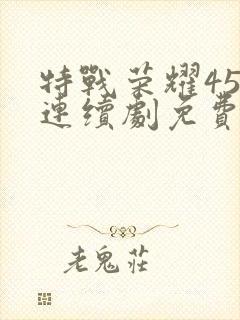 特戰榮耀45
連續劇免費
老鬼莊